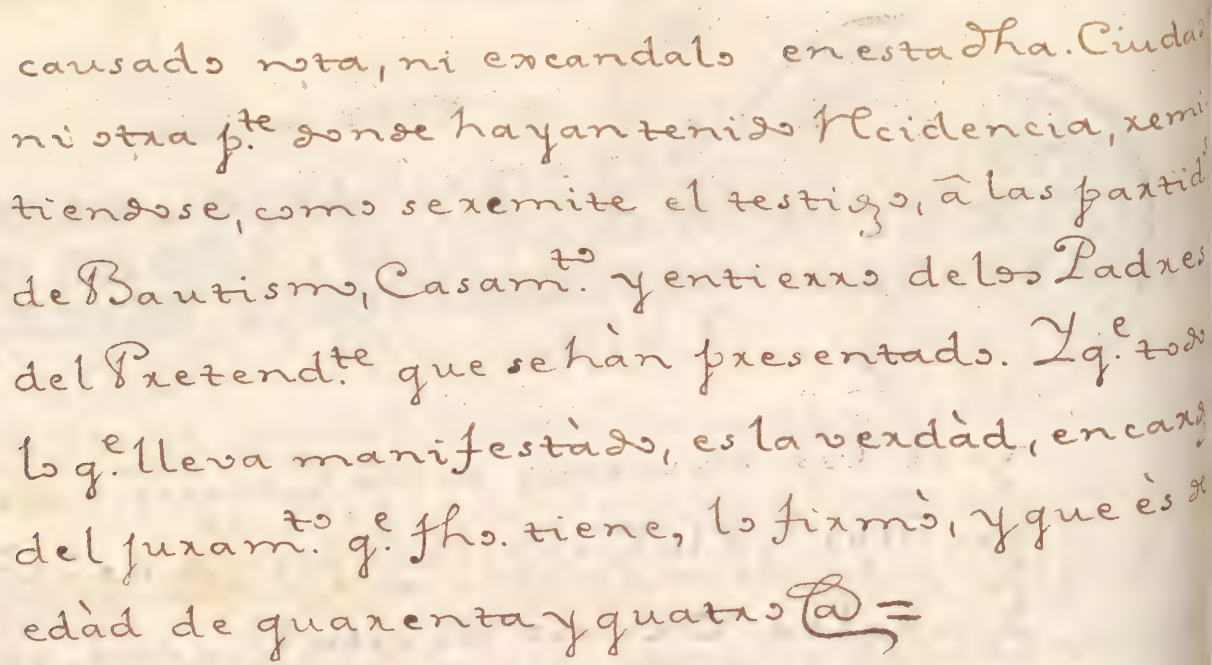 causado nota, ni excandalo en esta dha. Ciudad
ni otra p.te donde hayan tenido Recidencia, remi
tiendose, como se remite el testigo, â las partid.s
de Bautismo, Casam.to y entierro de los Padres
del Pretend.te que se hàn presentado. Y q.e todo
lo q.e lleva manifestàdo, es la verdàd, en cargo
del juram.to q.e fho. tiene, lo firmò, y que ès de
edàd de quarenta y quatro a =